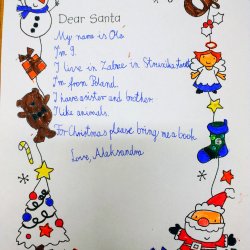 Dear Santa
My name is Ola.
I'm 9.
I live in Zabrze in
I'm from Poland.
I have sister and brother.
I like animals.
For Christmas please bring me a book.
Love, Aleksandra